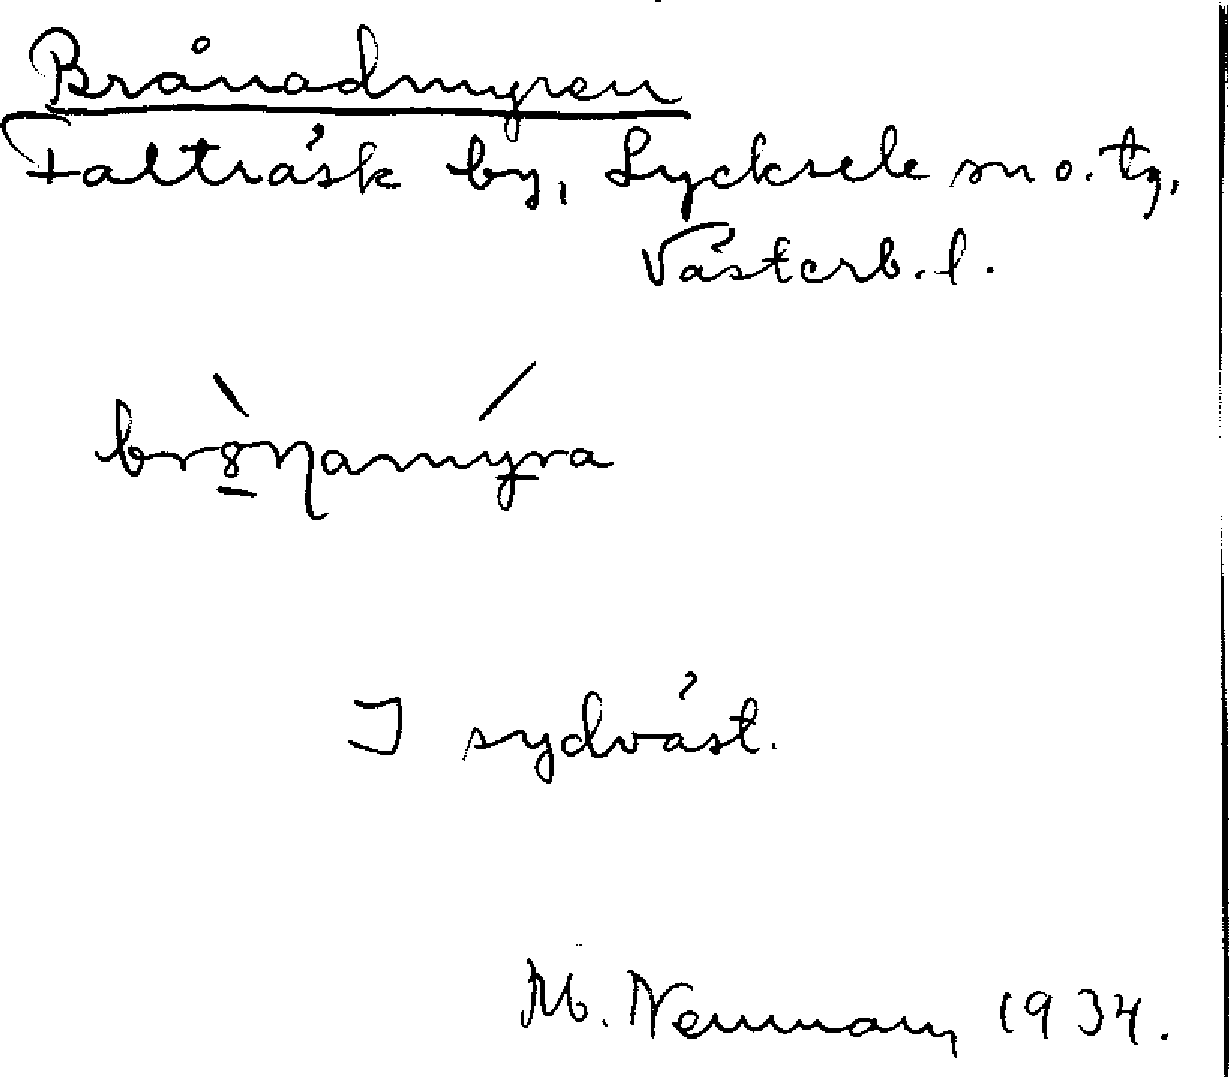 Brånadmyren
Falträsk by, Lycksele sn o. tg,
Västerb. l.
I sydväst.
M. Neumann 1934.